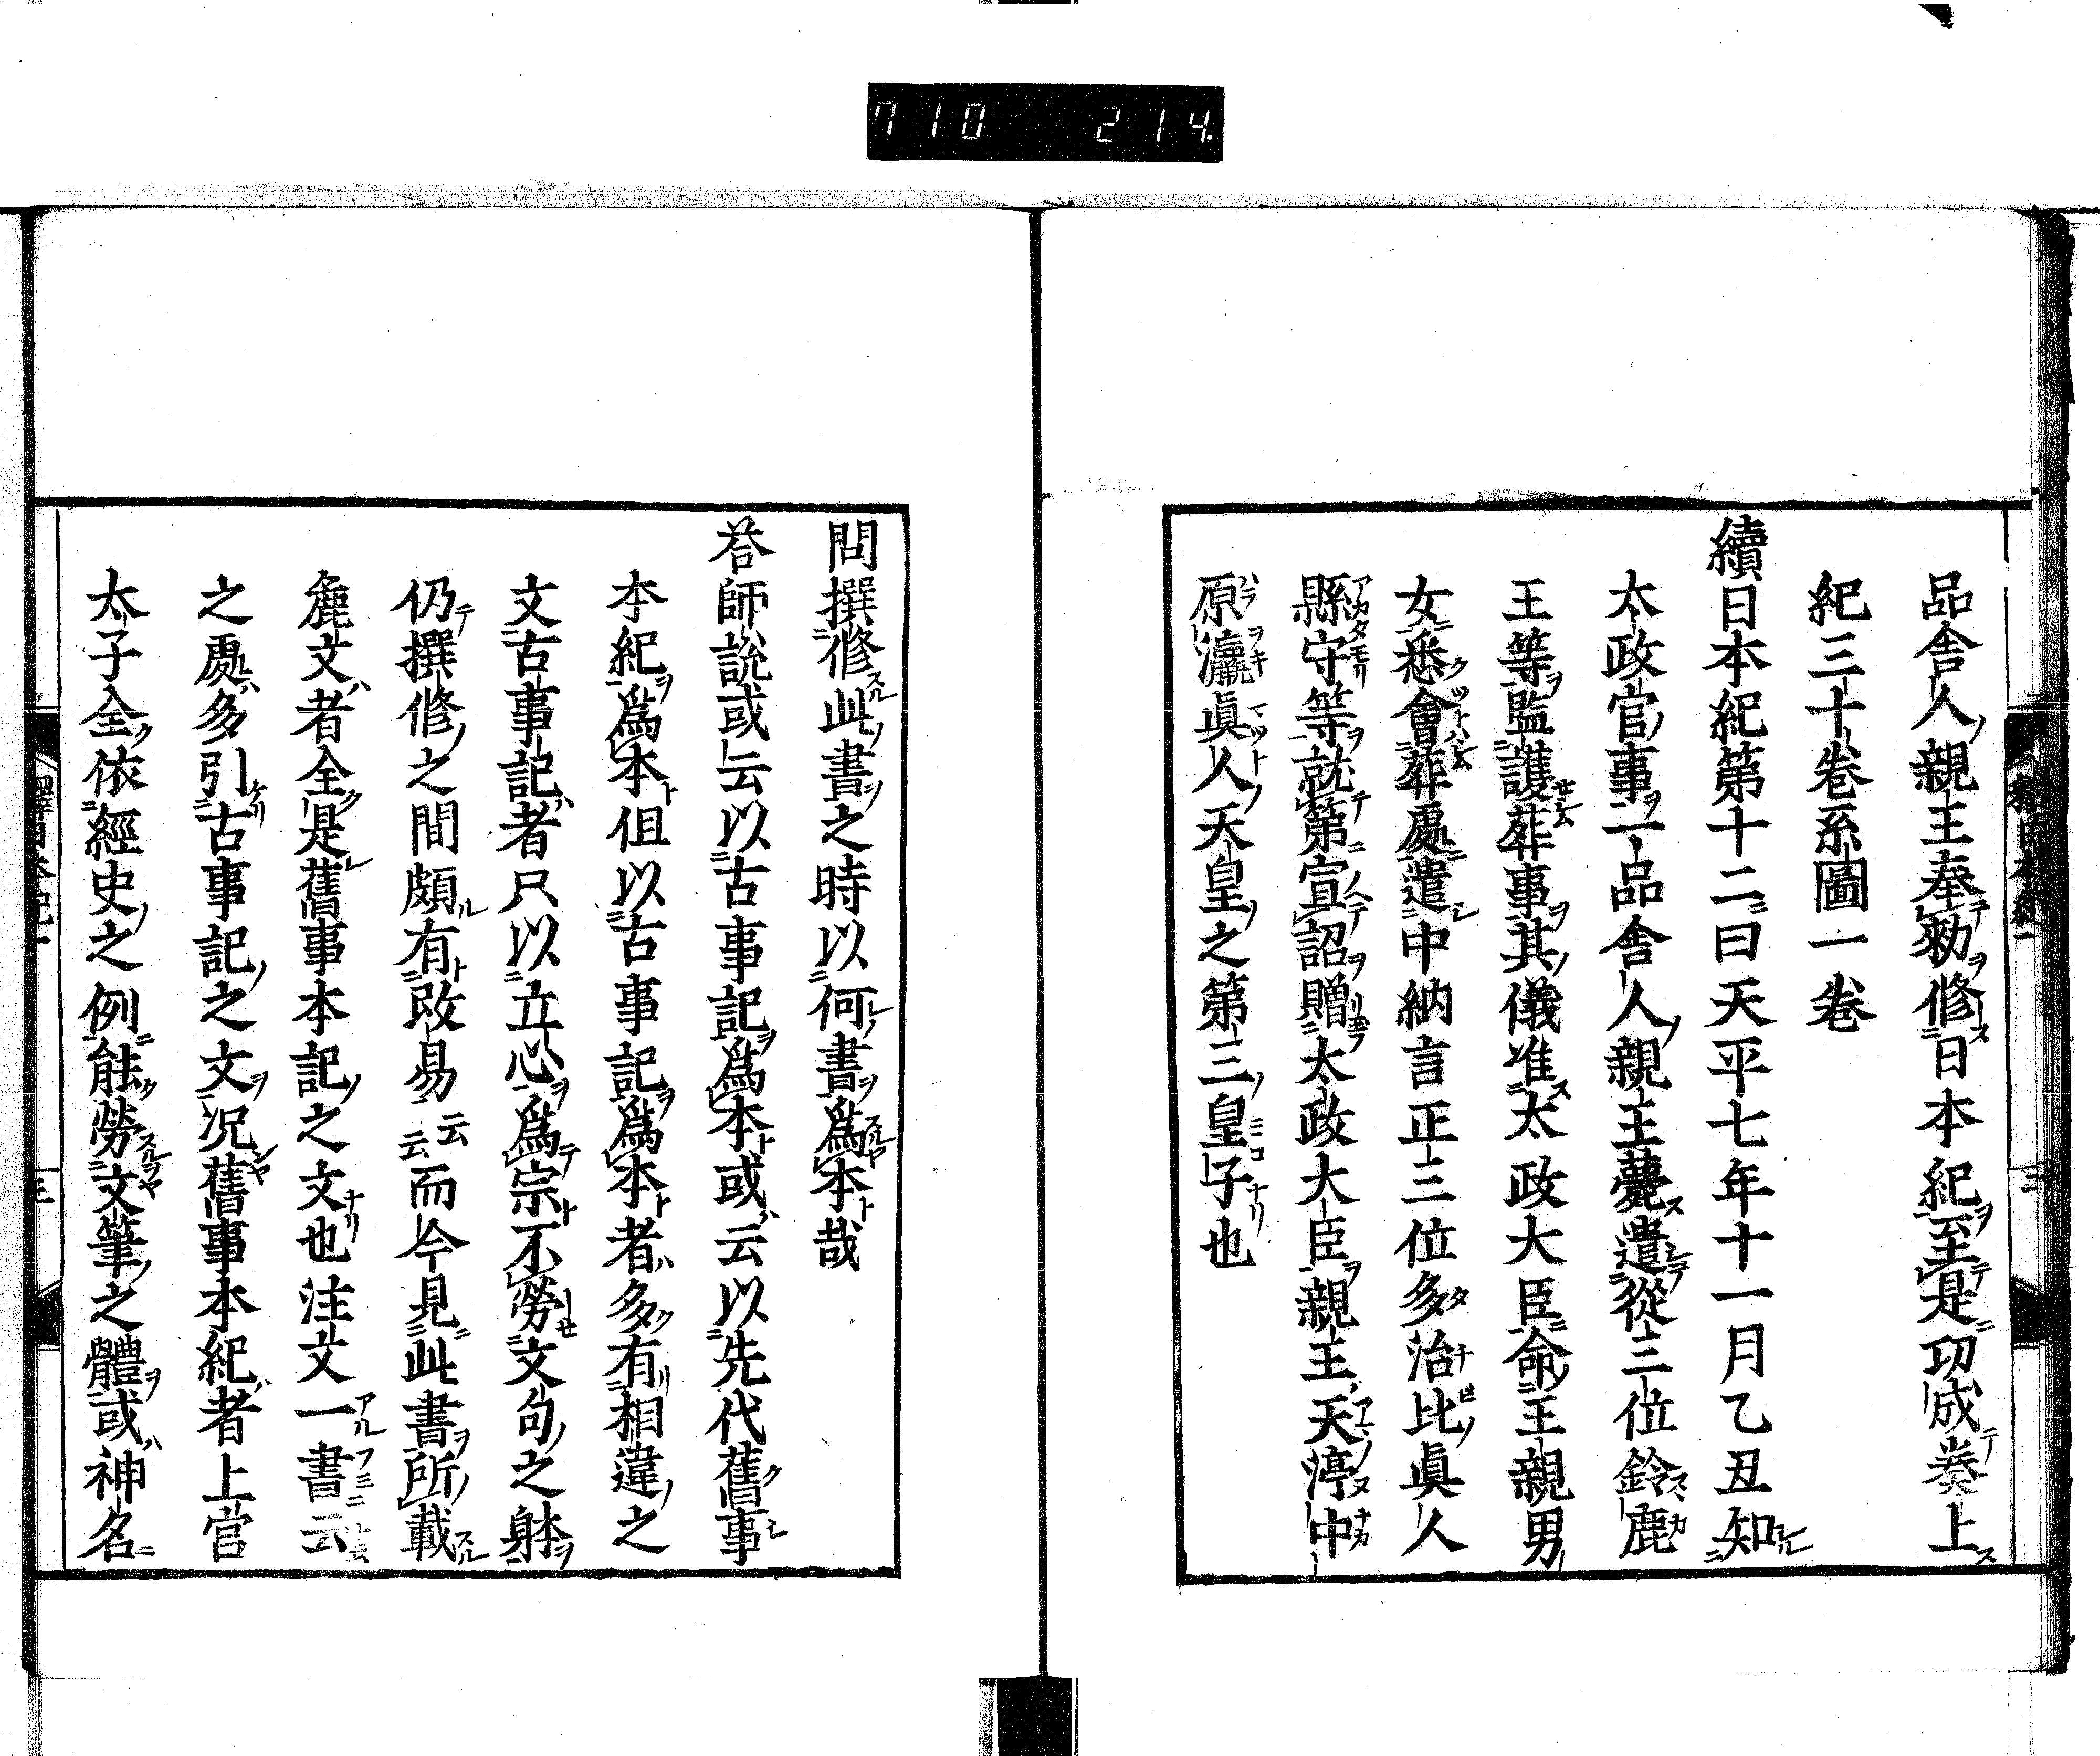 710 214
品舎人親王奉勅修日本紀至是功成奏上
紀三十卷系圖一卷
續日本紀第十二曰天平七年十一月乙丑知
太政官事一品舎人親王薨遣從三位鈴鹿
王等監護葬事其儀准太政大臣命王親男
女悉會葬處遣中納言正三位多治比眞人
縣守等就第宣詔贈太政大臣親王天渟中
原瀛眞人天皇之第三皇子也
問撰修此書之時以何書爲本哉
荅師說或云以古事記爲本或云以先代舊事
本紀爲本但以古事記爲本者多有相違之
文古事記者只以立心爲宗不勞文句之躰
仍撰修之間頗有改易云云而今見此書所載
麁文者全是舊事本記之文也注文一書云
之處多引古事記之文况舊事本紀者上宮
太子全依經史之例能勞文筆之體或神名